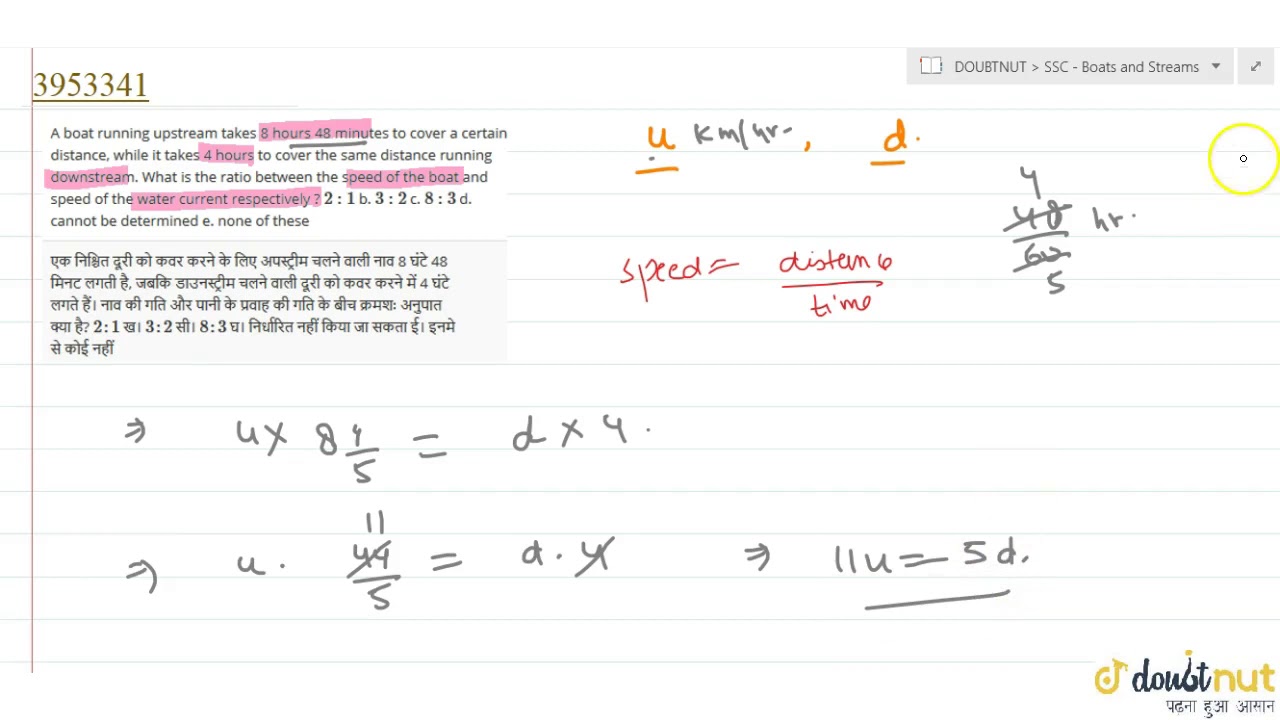 3953341
DOUBTNUT > SSC - Boats and Streams
A boat running upstream takes 8 hours 48 minutes to cover a certain
distance, while it takes 4 hours to cover the same distance running
downstream. What is the ratio between the speed of the boat and
speed of the water current respectively ? 2 : 1 b. 3 : 2 c. 8 : 3 d.
cannot be determined e. none of these
एक निश्चित दूरी को कवर करने के लिए अपस्ट्रीम चलने वाली नाव 8 घंटे 48
मिनट लगती है, जबकि डाउनस्ट्रीम चलने वाली दूरी को कवर करने में 4 घंटे
लगते हैं। नाव की गति और पानी के प्रवाह की गति के बीच क्रमशः अनुपात
क्या है? 2 : 1 ख। 3 : 2 सी। 8 : 3 घ। निर्धारित नहीं किया जा सकता ई। इनमे
से कोई नहीं
u km/hr , d.
4
48 hr.
60
5
speed = distance
time
⇒ u × 8 4/5 = d × 4 .
11
⇒ u . 44/5 = d . 4 ⇒ 11u = 5d.
doubtnut
पढ़ना हुआ आसान